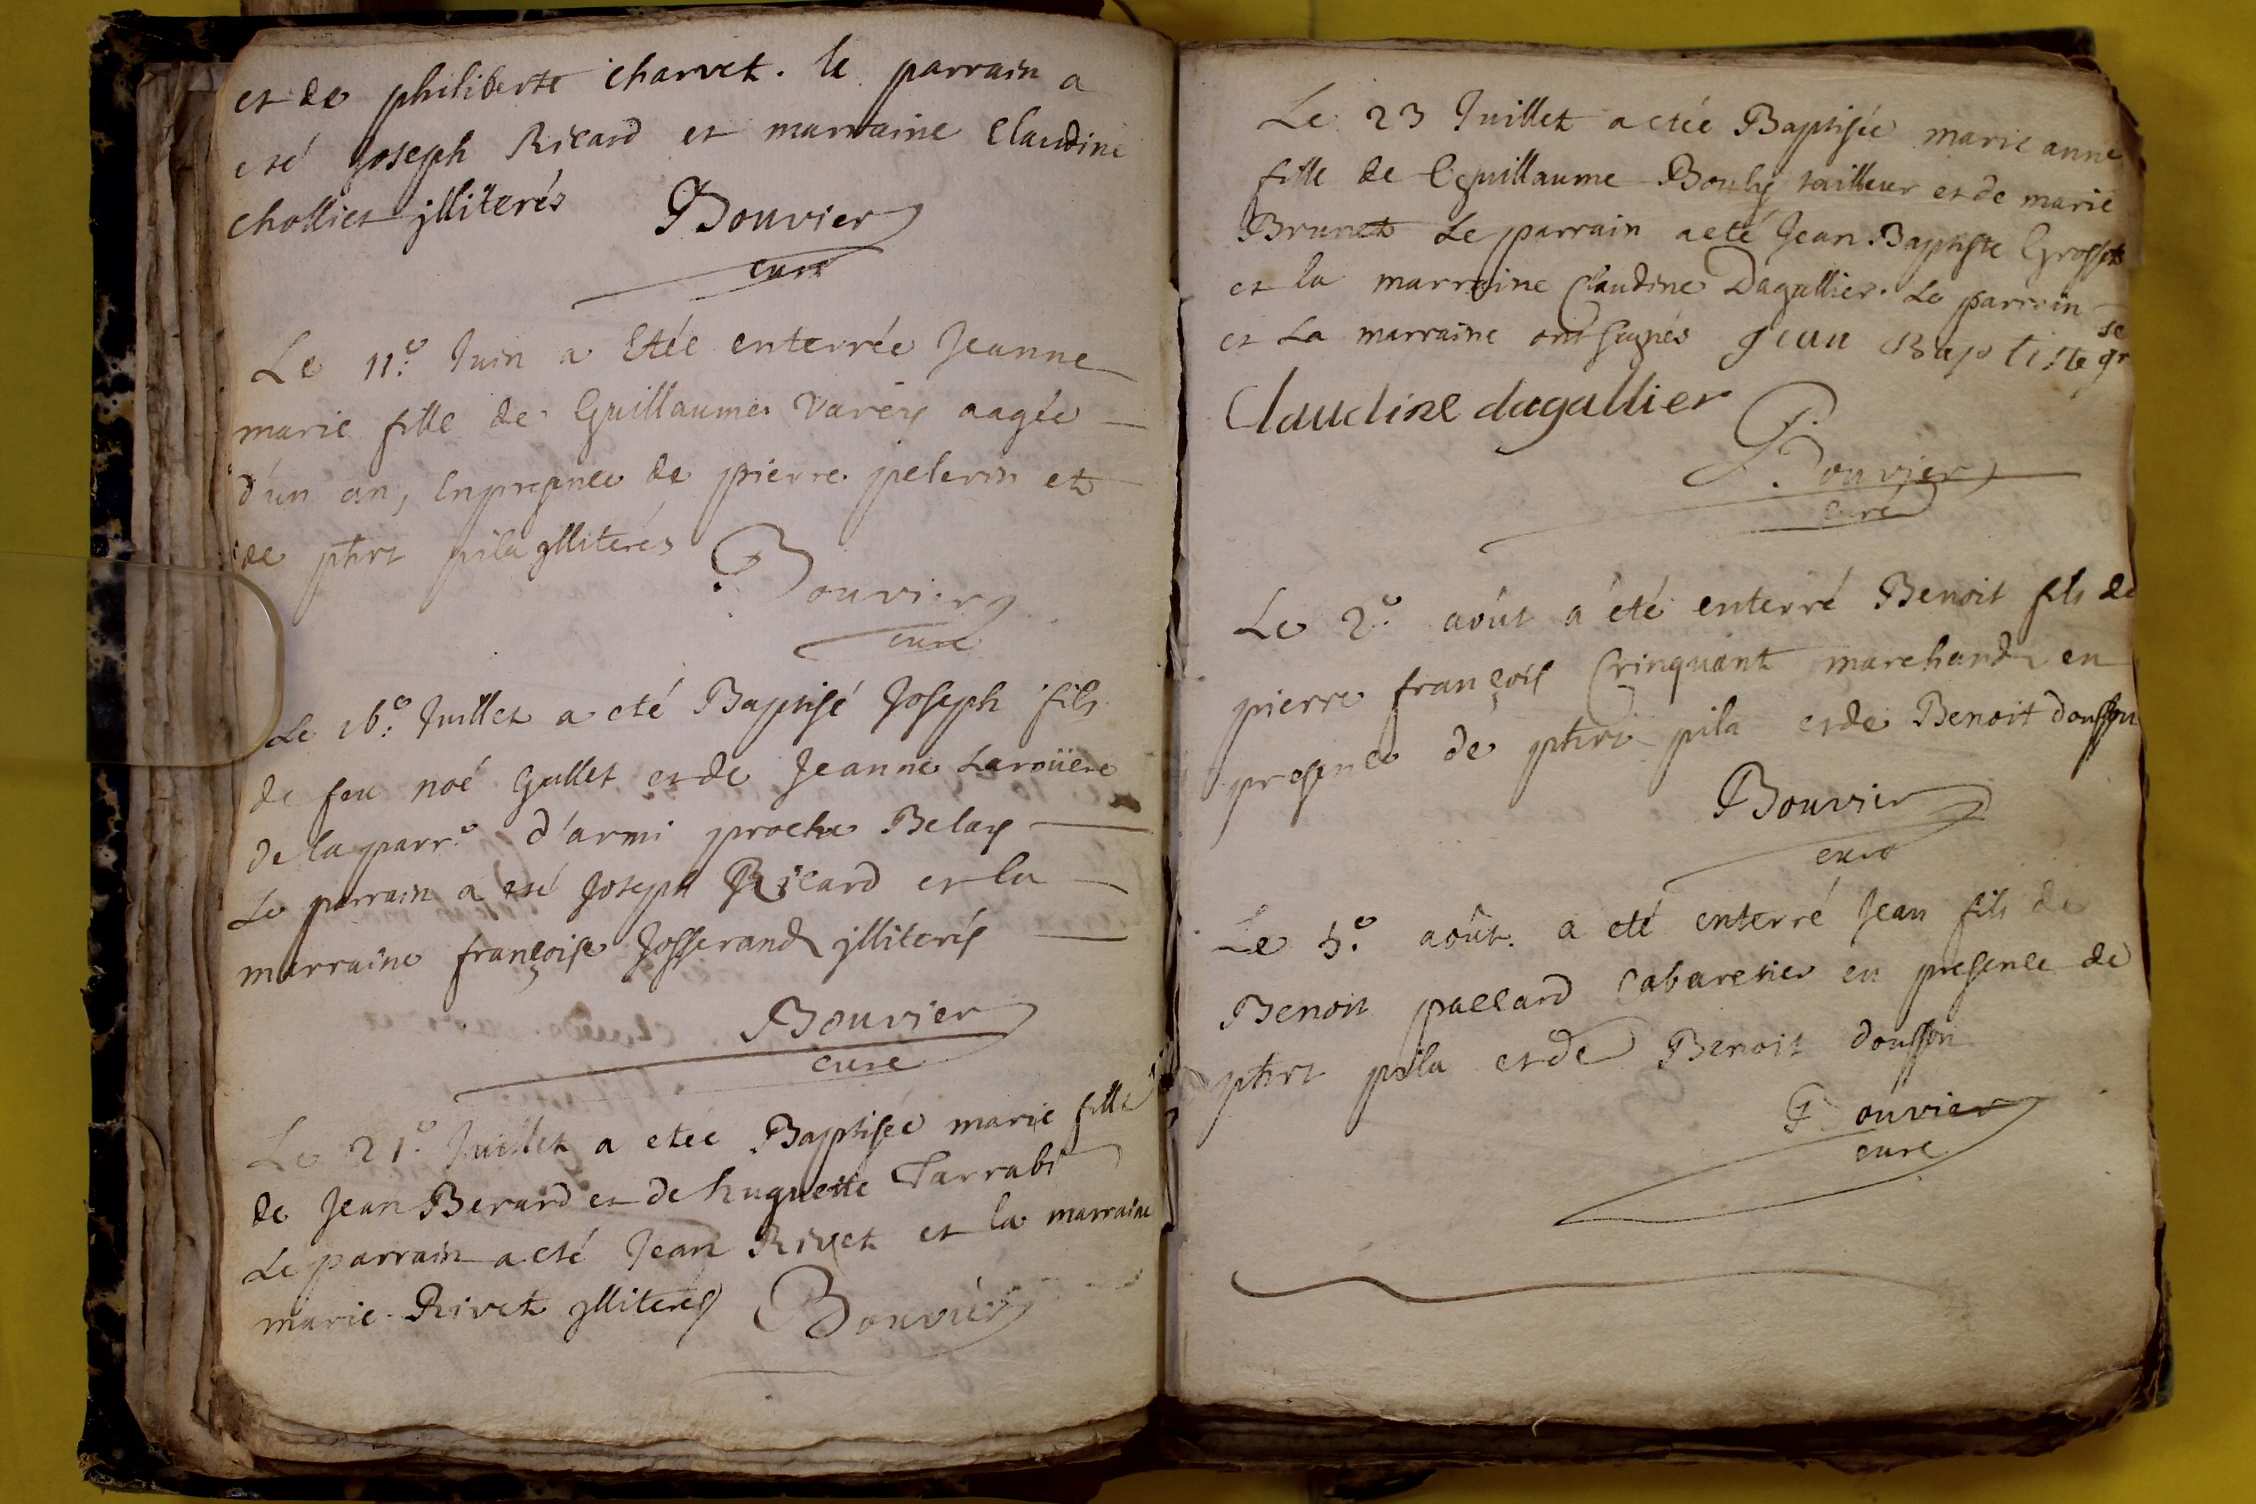 et de philiberte charvet. le parrain a
eté joseph Ricard et marraine Claudine
cholliet jlliterés Bouvier
curé
Le 11.e Juin a Etée enterrée Jeanne
marie fille de Guillaume Varéy aagée
d'un an, En presence de pierre pelerin et
de phrt pila jlliterés
Bouvier
curé
Le 16.e Juillet a eté Baptisé Joseph fils
de feu noé Gullet et de Jeanne Laroüere
de la parr.e d'armi proche Belay
Le parrain a eté Joseph Ricard et la
marraine françoise Josserand jlliterés
Bouvier
curé
Le 21.e Juillet a etée Baptisée marie fille
de Jean Berard et de huguette Tarrabi
Le parrain a eté Jean Rivet et la marraine
marie Rivet jlliterés Bouvier
Le 23 Juillet a etée Baptisée marie anne
fille de Guillaume Bouly tailleur et de marie
Brunet Le parrain a eté Jean Baptiste Grosset
et la marraine Claudine Dagallier. Le parrain
et La marraine ont signés jean Baptiste gr
Claudine dagallier
Bouvier
curé
Le 2.e aôut a eté enterré Benoit fils de
pierre françois Crinquant marchand en
presence de phrt pila et de Benoit dousson
Bouvier
curé
Le 5.e aôut. a eté enterré Jean fils de
Benoit paccard Cabaretier en presence de
phrt pila et de Benoit dousson
Bouvier
curé